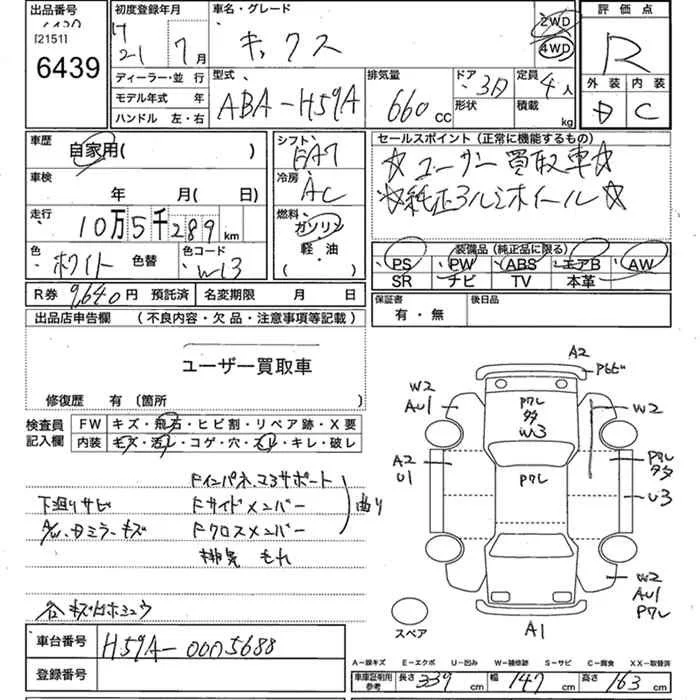 出品番号
[2151]
6439
初度登録年月
H 21 7月
ディーラー・並 行
モデル年式 年
ハンドル 左・右
車名・グレード
キックス
2WD
4WD
型式
ABA-H59A
排気量
660cc
ドア
3D
形状
定員
4人
積載
kg
評価点
R
外装 内装
D C
車歴
自家用( )
車検
年 月( 日)
走行
10万5千289km
色
ホワイト 色替
色コード
W13
シフト
FA7
冷房
AC
燃料
ガソリン
軽・油
セールスポイント(正常に機能するもの)
☆ユーザー買取車☆
☆純正アルミホイール☆
装備品(純正品に限る)
PS PW ABS エアB AW
SR ナビ TV 本革
R券 9,640円 預託済 名変期限 月 日
保証書
有・無
後日品
出品店申告欄 (不良内容・欠品・注意事項等記載)
ユーザー買取車
修復歴 有(箇所 )
検査員
記入欄
FW キズ・飛石・ヒビ割・リペア跡・X要
内装 キズ・汚レ・コゲ・穴・スレ・キレ・破レ
Fインパネ、コアサポート
下廻りサビ Fサイドメンバー 曲り
A/W、Dミラーキズ Fクロスメンバー
排気 もれ
各キズ凹ホシュウ
A2
W2
AU1
A2
U1
Pワレ
多
W3
Pワレ
W2
Pワレ
多タ
U3
W2
AU1
Pワレ
A1
スペア
車台番号
H59A-0005688
登録番号
A-線キズ E-エクボ U-凹み W-補修跡 S-サビ C-腐食 XX-取替済
車庫証明用
参考
長さ 339cm 幅 147cm 高さ 163cm